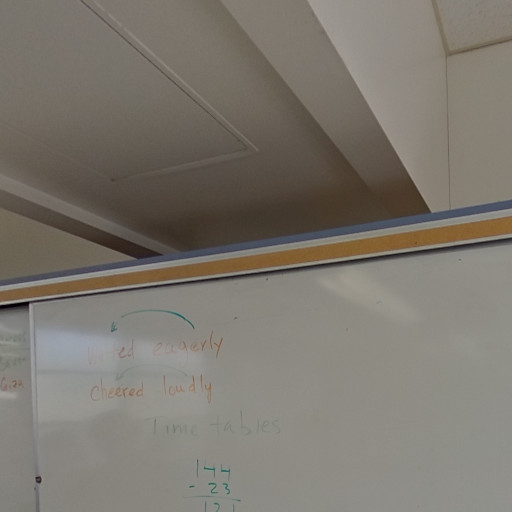 Waited eagerly
cheered loudly
Time tables
144
- 23
121